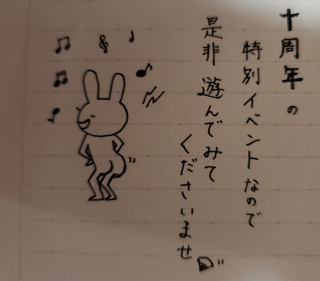 十周年の
特別イベントなので
是非遊んでみて
くださいませ